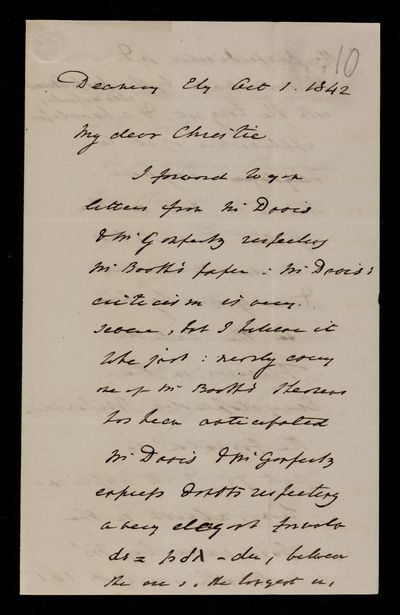 10
Deanery Ely Oct 1. 1842
My dear Christie
I forward to you
letters from Mr Davis
& Mr Gompertz respecting
Mr Booth's paper : Mr Davis's
criticism is very
severe, but I believe it
to be just : nearly every
one of Mr Booth's theorems
has been anticipated
Mr Davis & Mr Gompertz
express doubts respecting
a very elegant formula
ds = pdλ - du, between
the arc s, the tangent u,